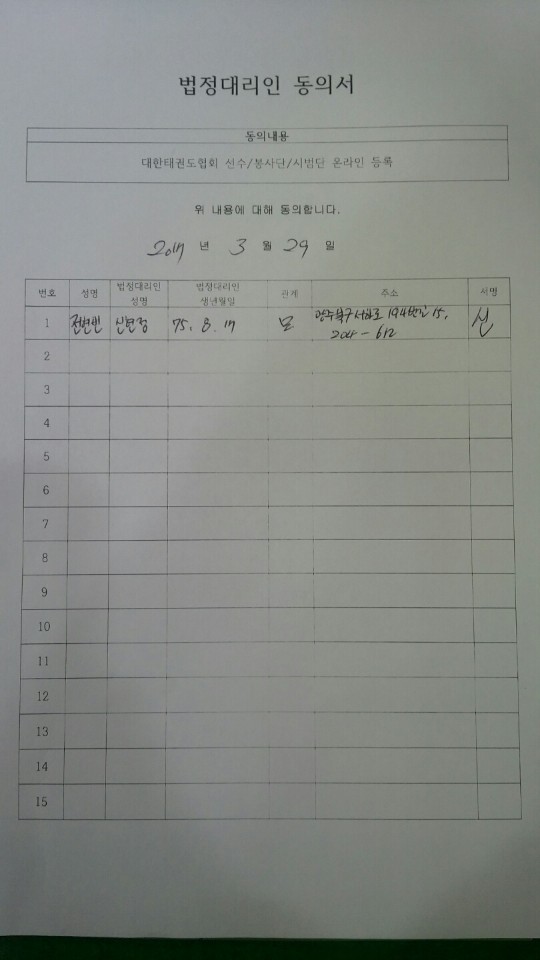 법정대리인 동의서
동의내용
대한태권도협회 선수/봉사단/시범단 온라인 등록
위 내용에 대해 동의합니다.
2017 년 3 월 29 일
번호 성명 법정대리인 성명 법정대리인 생년월일 관계 주소 서명
1 전현빈 신현정 75. 8. 17 모 광주북구 서하로 194번길 15, 신
204 - 612
2
3
4
5
6
7
8
9
10
11
12
13
14
15